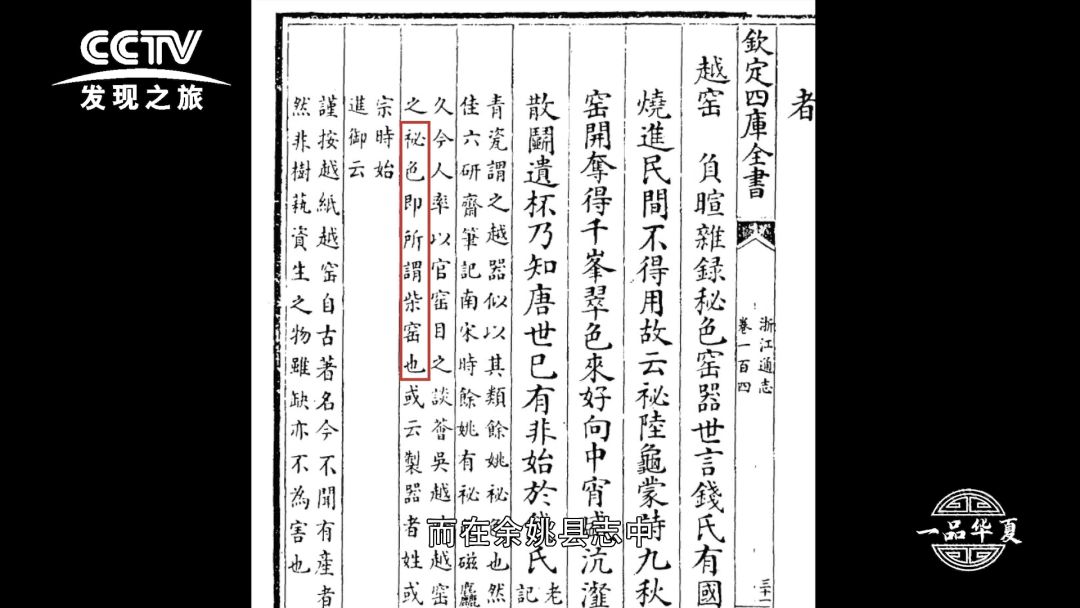 CCTV
发现之旅
者
欽定四庫全書
浙江通志
卷一百四
三十一
越窑 負暄雜録秘色窑器世言錢氏有國
燒進民間不得用故云祕陸龜蒙詩九秋
窑開奪得千峯翠色來好向中宵盛沆瀣
散鬭遺杯乃知唐世已有非始於氏
老
記
青瓷謂之越器似以其類餘姚秘也然
佳六研齋筆記南宋時餘姚有秘磁麤
久今人率以官窑目之談薈吳越越窑
之祕色即所謂柴窑也或云製器者姓或
宗時始
進御云
謹按越紙越窑自古著名今不聞有產者
然非樹蓺資生之物雖缺亦不為害也
而在余姚县志中
一品华夏